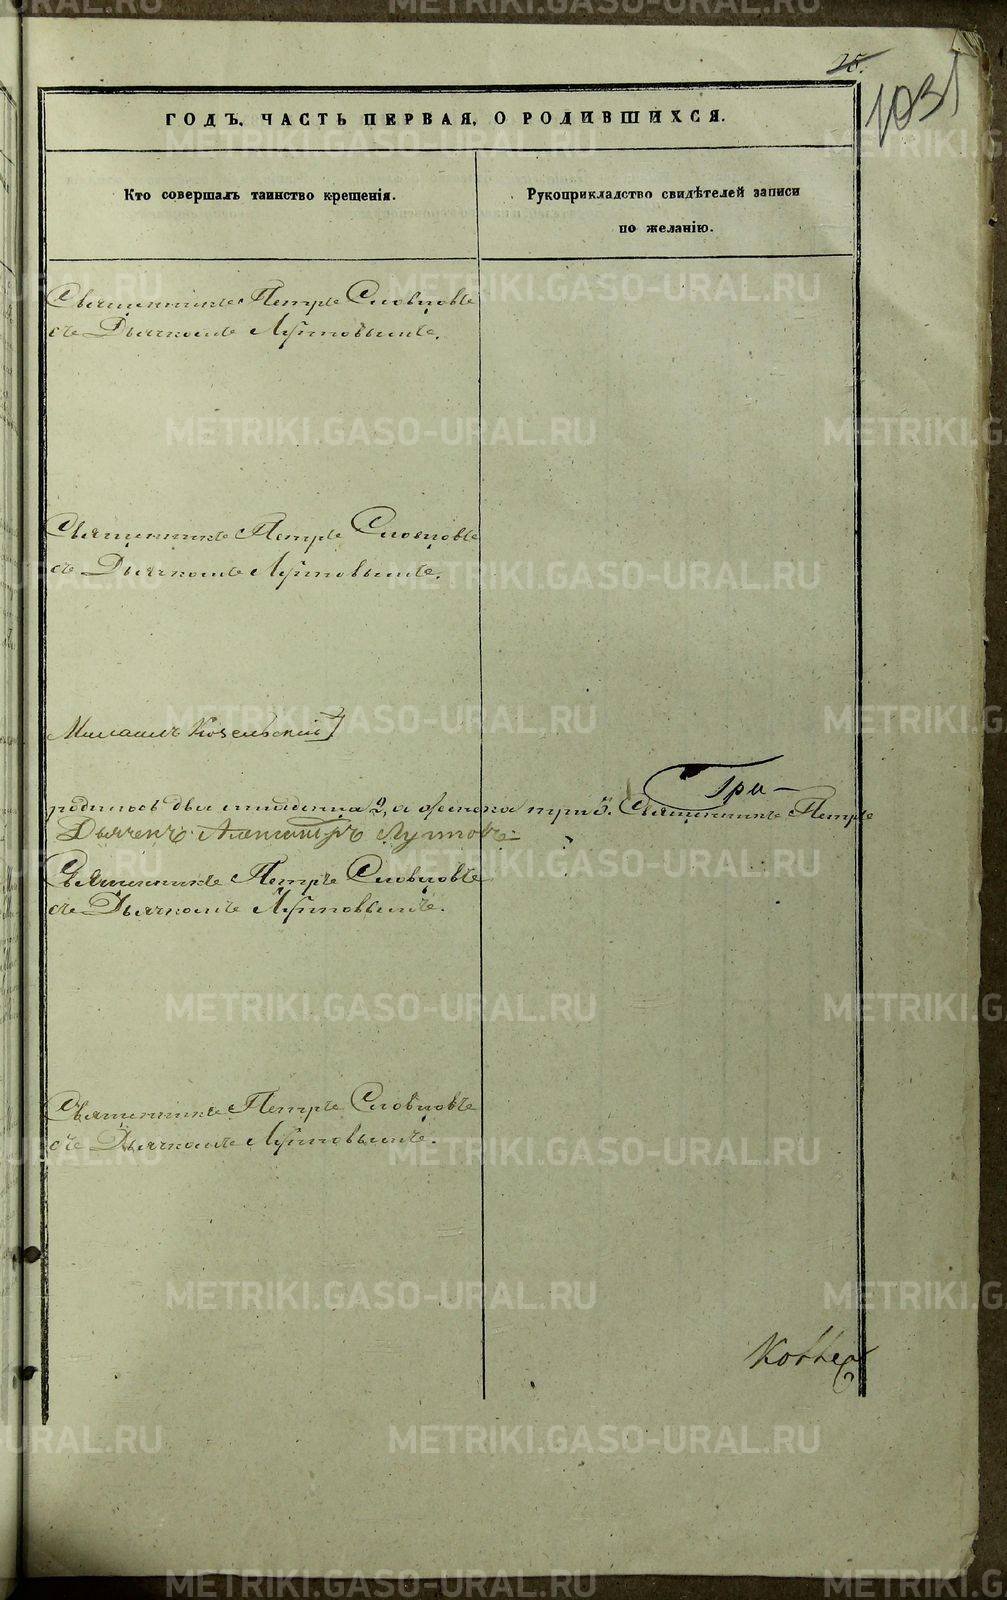 25.
103
ГОДЪ, ЧАСТЬ ПЕРВАЯ, О РОДИВШИХСЯ.
Кто совершалъ таинство крещенія.
Рукоприкладство свидѣтелей записи
по желанію.
Священникъ Петръ Словцовъ
съ Дьячкомъ Луттовымъ.
Священникъ Петръ Словцовъ
съ Дьячкомъ Луттовымъ.
Михаилъ
Гри-
родилось два младенца 2, а женска три 3. Священникъ Петръ
Дьячекъ Александръ
Священникъ Петръ Словцовъ
съ Дьячкомъ Луттовымъ.
Священникъ Петръ Словцовъ
съ Дьячкомъ Луттовымъ.
METRIKI.GASO-URAL.RU